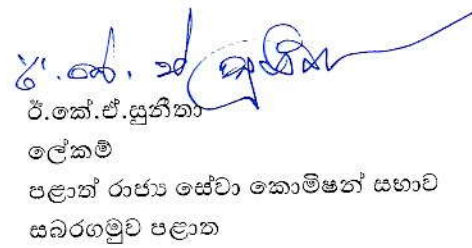 ඊ.කේ.ඒ.සුනීතා
ලේකම්
පළාත් රාජ්‍ය සේවා කොමිෂන් සභාව
සබරගමුව පළාත